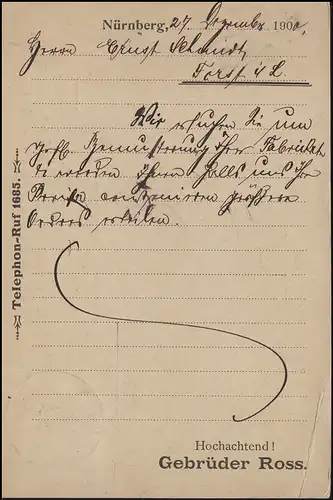 Nürnberg, 27. Dezember 1900.
Herrn Ernst Schmidt,
Forst i/L
Wir ersuchen Sie um
gefl. Bemusterung Ihrer Fabrikate
& werden Ihnen falls uns Ihre
Preise convenieren größere
Ordres erteilen.
Telephon-Ruf 1685.
Hochachtend!
Gebrüder Ross.